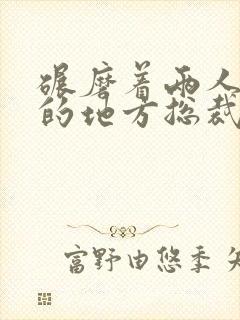 碾磨着两人
的地方总裁
富野由悠季